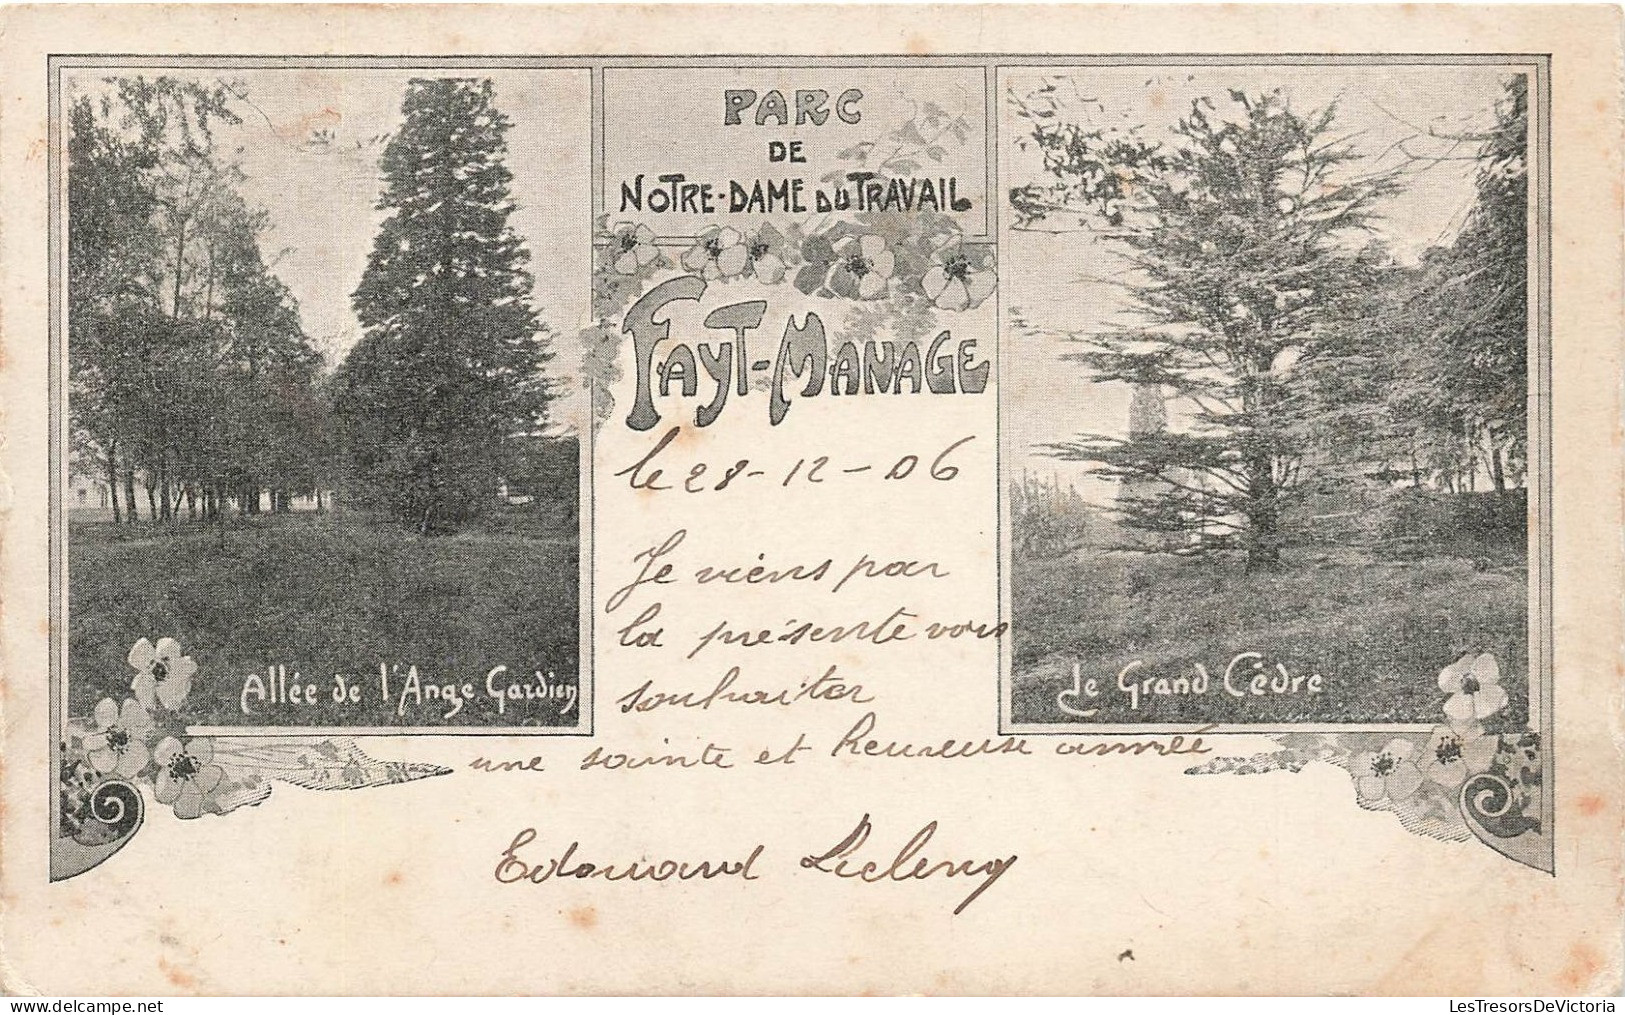 PARC
DE
NOTRE-DAME DU TRAVAIL
FAYT-MANAGE
Allée de l'Ange Gardien
Le Grand Cèdre
le 28-12-06
Je viens par
la présente vous
souhaiter
une sainte et heureuse année
Edouard
LesTresorsDeVictoria